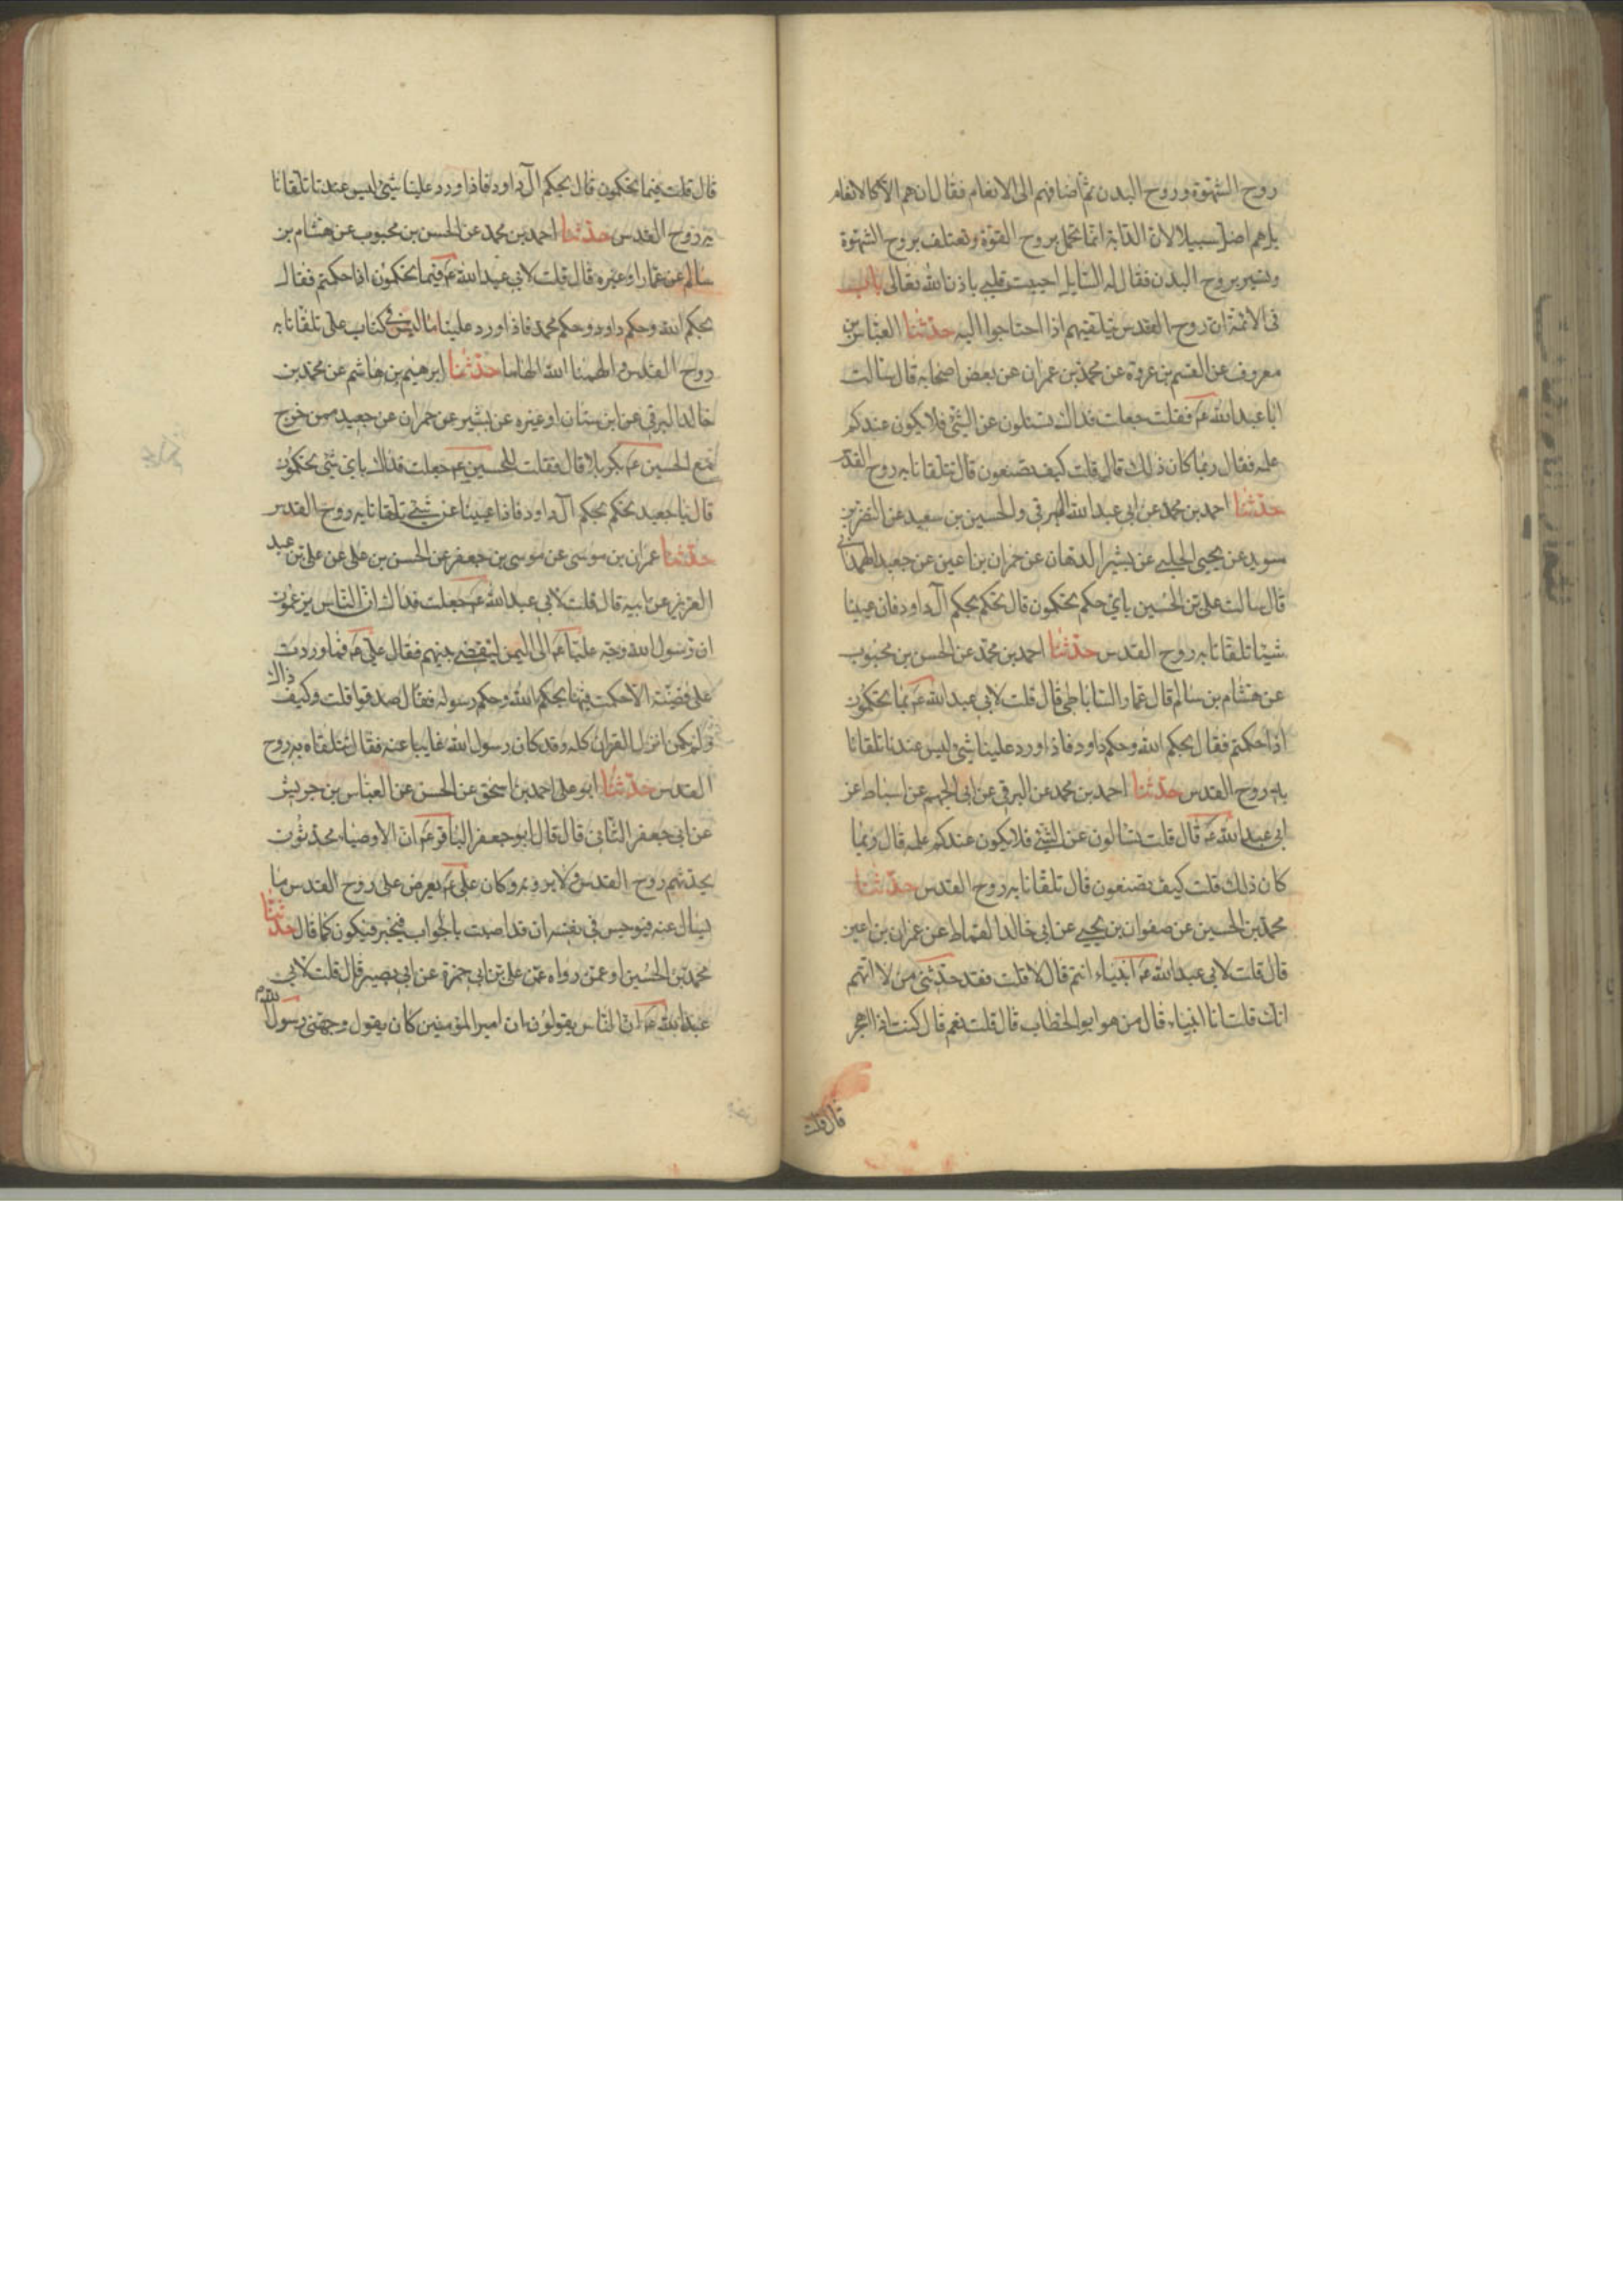 روح الشهوة وروح البدن ثم اضافهم الى الانعام فقال ان هم الا كالانعام
بل هم اضل سبيلا لان الدابة انما تحمل بروح القوة وتعتلف بروح الشهوة
وتسير بروح البدن فقال له السايل احييت قلبي باذن الله تعالى باب
في الائمة ان روح القدس يتلقيهم اذا احتاجوا اليه حدثنا العباس بن
معروف عن القسم بن عروة عن محمد بن عمران عن بعض اصحابه قال سالت
ابا عبد الله ع فقلت جعلت فداك تسئلون عن الشئ فلا يكون عندكم
علمه فقال ربما كان ذلك قال قلت كيف تصنعون قال تتلقانا به روح القدس
حدثنا احمد بن محمد عن ابي عبد الله البرقي والحسين بن سعيد عن النضر بن
سويد عن يحيى الحلبي عن بشير الدهان عن حمران بن اعين عن جعيد الهمداني
قال سالت علي بن الحسين باي حكم تحكمون قال نحكم بحكم آل داود فان عيينا
شيئا تلقانا به روح القدس حدثنا احمد بن محمد عن الحسن بن محبوب
عن هشام بن سالم قال عمار الساباطي قال قلت لابي عبد الله ع بما تحكمون
اذا حكمتم فقال بحكم الله وحكم داود فاذا ورد علينا شئ ليس عندنا تلقانا
به روح القدس حدثنا احمد بن محمد عن البرقي عن ابي الجهم عن اسباط عن
ابي عبد الله ع قال قلت تسالون عن الشئ فلا يكون عندكم علمه قال ربما
كان ذلك قلت كيف تصنعون قال تلقانا به روح القدس حدثنا
محمد بن الحسين عن صفوان بن يحيى عن ابي خالد القماط عن عمران بن اعين
قال قلت لابي عبد الله ع انبياء انتم قال لا قلت فقد حدثني من لا اتهم
انك قلت انا انبياء قال من هو ابو الخطاب قال قلت نعم قال كنت اذا اهجر
قال قلت
قال قلت فبما تحكمون قال بحكم آل داود فاذا ورد علينا شئ ليس عندنا تلقانا
به روح القدس حدثنا احمد بن محمد عن الحسن بن محبوب عن هشام بن
سالم عن عمار او غيره قال قلت لابي عبد الله ع فبما تحكمون اذا حكمتم فقال
بحكم الله وحكم داود وحكم محمد فاذا ورد علينا ما ليس في كتاب علي تلقانا به
روح القدس والهمنا الله الهاما حدثنا ابرهيم بن هاشم عن محمد بن
خالد البرقي عن ابن سنان او غيره عن بشير عن حمران عن جعيد ممن خرج
مع الحسين ع بكربلا قال فقلت للحسين ع جعلت فداك باي شئ تحكمون
قال يا جعيد نحكم بحكم آل داود فاذا عيينا عن شئ تلقانا به روح القدس
حدثنا عمران بن موسى عن موسى بن جعفر عن الحسن بن علي عن علي بن عبد
العزيز عن ابيه قال قلت لابي عبد الله ع جعلت فداك ان الناس يزعمون
ان رسول الله وجه عليا ع الى اليمن ليقضي بينهم فقال علي ع فما وردت
على قضية الا حكمت فيها بحكم الله وحكم رسوله فقال صدقوا قلت وكيف ذاك
ولم يكن انزل القران كله وقد كان رسول الله غايبا عنه فقال تتلقاه به روح
القدس حدثنا ابو علي احمد بن اسحق عن الحسن عن العباس بن جريش
عن ابي جعفر الثاني قال قال ابو جعفر الباقر ع ان الاوصياء محدثون
يحدثهم روح القدس ولا يرونه وكان علي ع يعرض على روح القدس ما
يسال عنه فيوجس في نفسه ان قد اصبت بالجواب فيخبر فيكون كما قال حدثنا
محمد بن الحسين او عمن رواه عن علي بن ابي حمزة عن ابي بصير قال قلت لابي
عبد الله ع ان الناس يقولون ان امير المؤمنين كان يقول وجهني رسول الله